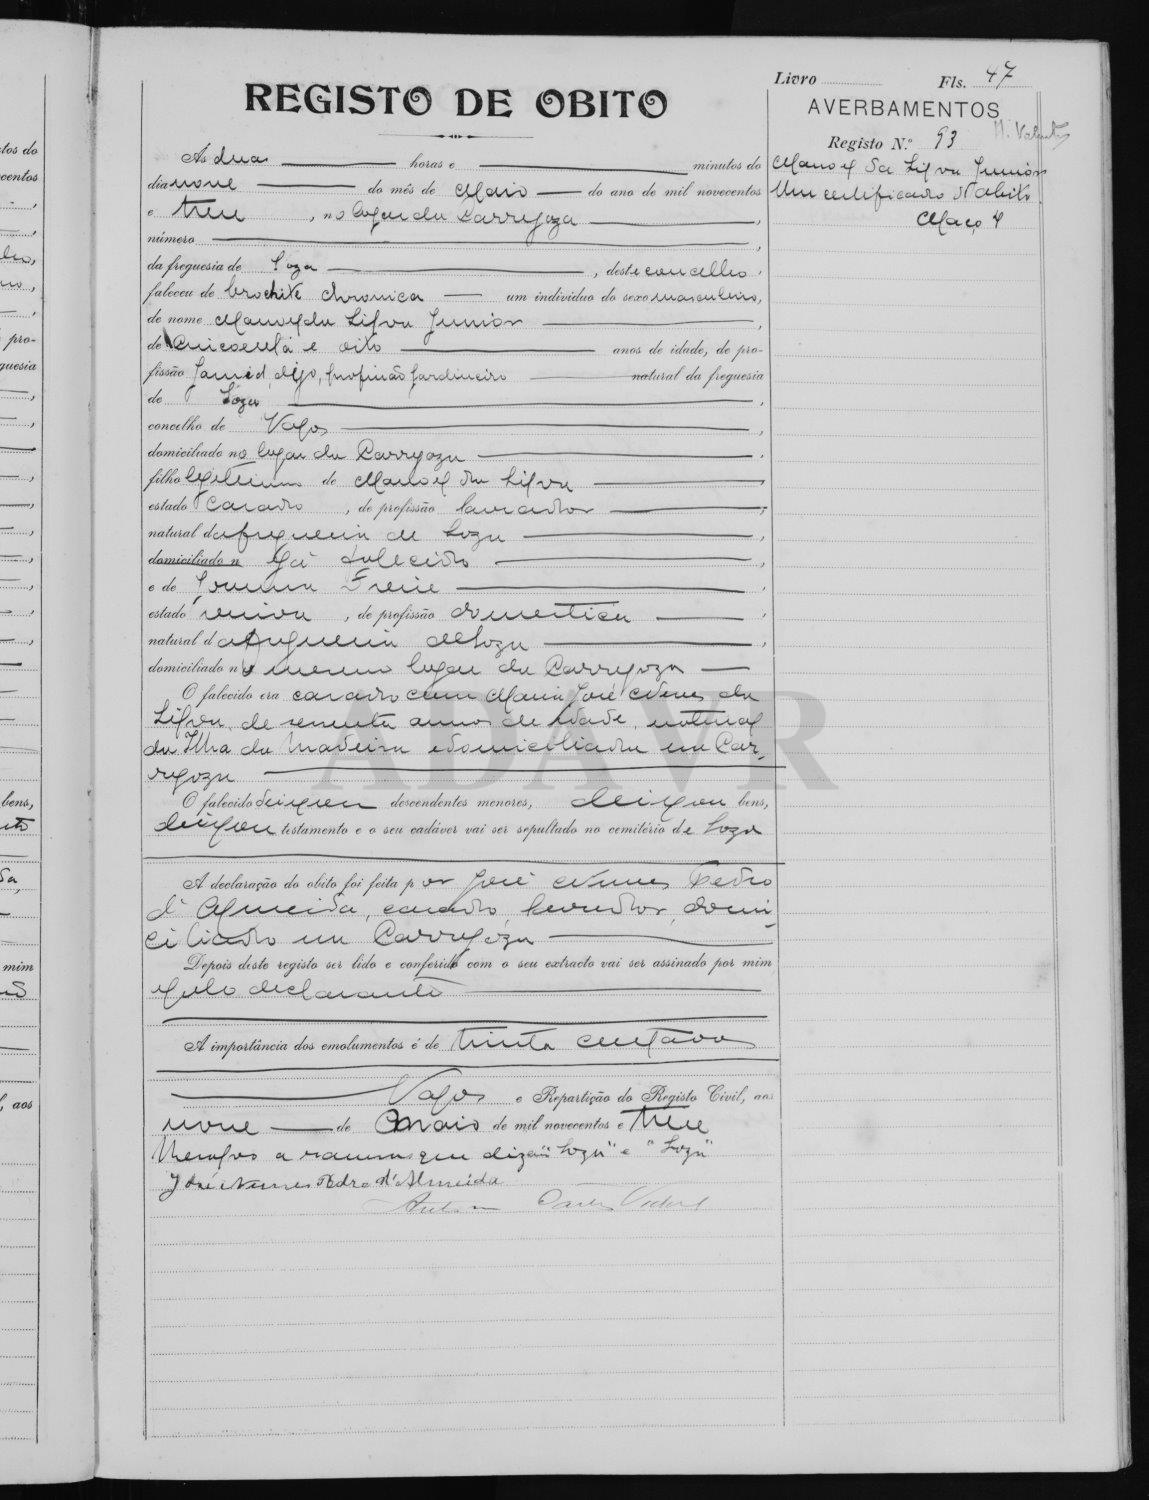 Livro Fls. 47
REGISTO DE OBITO
AVERBAMENTOS
Registo N.º 93
Manoel da Silva Junior
Um certificado d'obito.
Maço 4
As duas horas e minutos do
dia nove do mês de Maio do ano de mil novecentos
e treze, no lugar da Carregoza,
número ,
da freguesia de Soza, deste concelho,
faleceu de bronchite chronica um individuo do sexo masculino,
de nome Manoel da Silva Junior,
de cincoenta e oito anos de idade, de pro-
fissão digo, profissão Jardineiro natural da freguesia
de Soza,
concelho de Vagos,
domiciliado no lugar da Carregoza,
filho legitimo de Manoel da Silva
estado casado, de profissão lavrador,
natural da freguesia de Soza,
domiciliado n já falecido,
e de Joanna Freire,
estado viuva, de profissão domestica,
natural da freguesia de Soza,
domiciliado no mesmo lugar da Carregoza
O falecido era casado com Maria José Nunes da
Silva, de sessenta annos de idade, natural
da Ilha da Madeira e domiciliada em Car-
regoza
O falecido deixou descendentes menores, deixou bens,
deixou testamento e o seu cadáver vai ser sepultado no cemitério de Soza
A declaração do obito foi feita por José Nunes Pedro
d'Almeida, casado, lavrador, domi-
ciliado em Carregoza
Depois deste registo ser lido e conferido com o seu extracto vai ser assinado por mim
e pelo declarante
A importância dos emolumentos é de trinta centavos
Vagos e Repartição do Registo Civil, aos
nove de Maio de mil novecentos e treze
Resalvo a rasura que diz "Soza" e "Soza"
José Nunes Pedro d'Almeida
Carlos Vidal
ADAVR